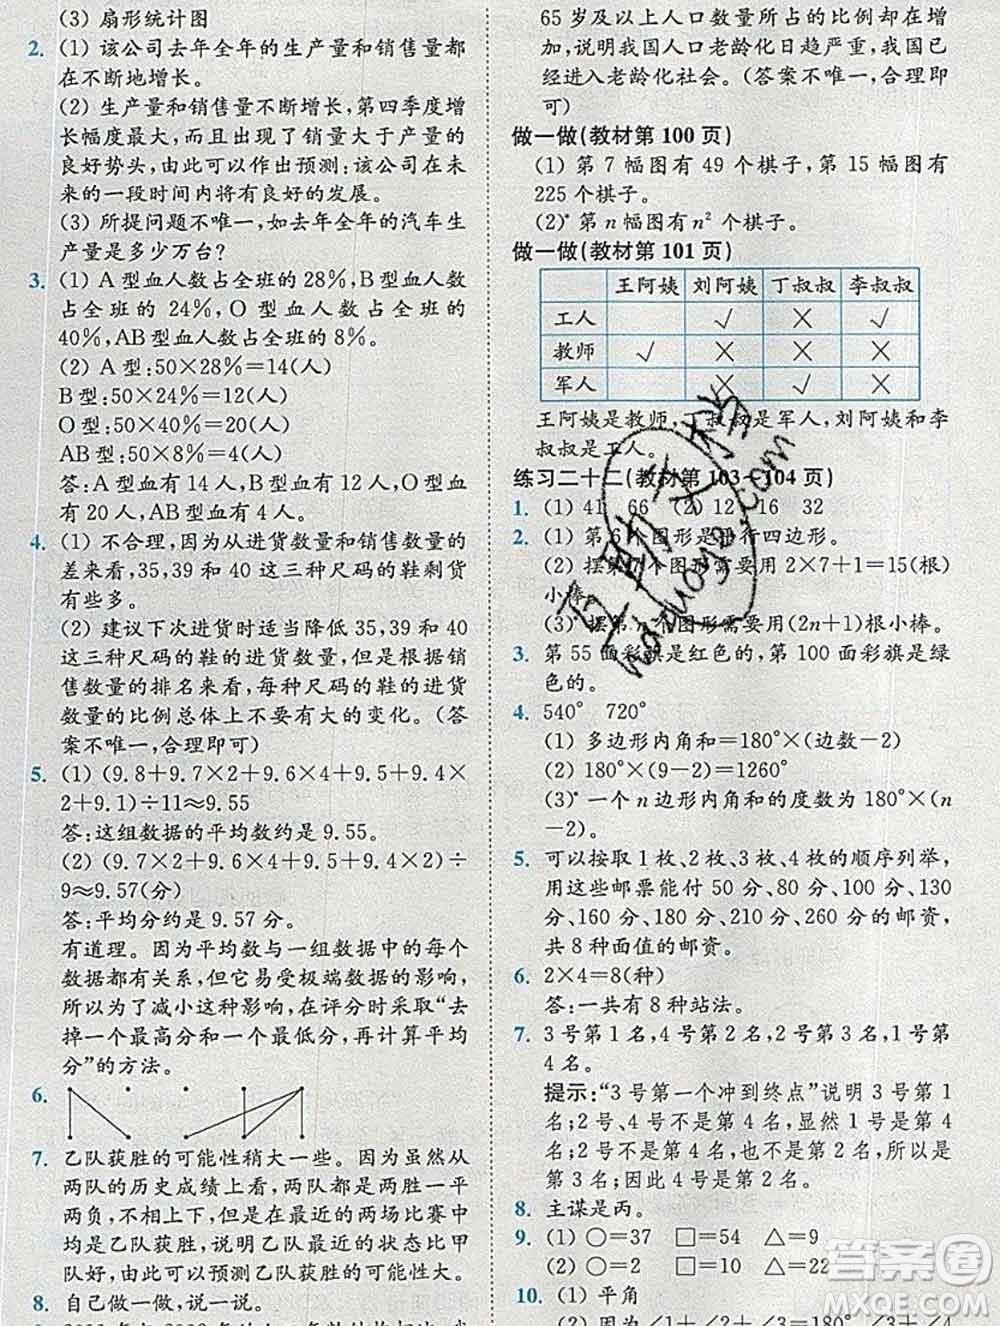 (3) 扇形统计图
2. (1) 该公司去年全年的生产量和销售量都
在不断地增长。
(2) 生产量和销售量不断增长，第四季度增
长幅度最大，而且出现了销量大于产量的
良好势头，由此可以作出预测：该公司在未
来的一段时间内将有良好的发展。
(3) 所提问题不唯一，如去年全年的汽车生
产量是多少万台？
3. (1) A型血人数占全班的28%，B型血人数
占全班的 24%，O 型血人数占全班的
40%，AB型血人数占全班的8%。
(2) A型：50×28%=14(人)
B型：50×24%=12(人)
O型：50×40%=20(人)
AB型：50×8%=4(人)
答：A型血有14人，B型血有12人，O型血
有20人，AB型血有4人。
4. (1) 不合理，因为从进货数量和销售数量的
差来看，35，39和40这三种尺码的鞋剩货
有些多。
(2) 建议下次进货时适当降低35，39和40
这三种尺码的鞋的进货数量，但是从销
售数量的排名来看，每种尺码的鞋的进货
数量的比例总体上不要有大的变化。(答
案不唯一，合理即可)
5. (1) (9.8+9.7×2+9.6×4+9.5+9.4×
2+9.1)÷11≈9.55
答：这组数据的平均数约是9.55。
(2) (9.7×2+9.6×4+9.5+9.4×2)÷
9≈9.57(分)
答：平均分约是9.57分。
有道理。因为平均数与一组数据中的每个
数据都有关系，但它易受极端数据的影响，
所以为了减小这种影响，在评分时采取“去
掉一个最高分和一个最低分，再计算平均
分”的方法。
6.
7. 乙队获胜的可能性稍大一些。因为虽然从
两队的历史成绩上看，两队都是两胜一平
两负，不相上下，但是在最近的两场比赛中
均是乙队获胜，说明乙队最近的状态比甲
队好，由此可以预测乙队获胜的可能性大。
8. 自己做一做，说一说。
65岁及以上人口数量所占的比例却在增
加，说明我国人口老龄化日趋严重，我国已
经进入老龄化社会。(答案不唯一，合理即
可)
做一做(教材第100页)
(1) 第7幅图有49个棋子，第15幅图有
225个棋子。
(2)* 第n幅图有n²个棋子。
做一做(教材第101页)
王阿姨 刘阿姨 丁叔叔 李叔叔
工人 √ × √
教师 √ × × ×
军人 × √ ×
王阿姨是教师，丁叔叔是军人，刘阿姨和李
叔叔是工人。
练习二十二(教材第103~104页)
1. (1) 41 66 (2) 12 16 32
2. (1) 第6个图形是平行四边形。
(2) 摆第7个图形需要用2×7+1=15(根)
小棒。
(3)* 摆第n个图形需要用(2n+1)根小棒。
3. 第55面彩旗是红色的，第100面彩旗是绿
色的。
4. 540° 720°
(1) 多边形内角和=180°×(边数-2)
(2) 180°×(9-2)=1260°
(3)* 一个n边形内角和的度数为180°×(n
-2)。
5. 可以按取1枚、2枚、3枚、4枚的顺序列举，
用这些邮票能付50分、80分、100分、130
分、160分、180分、210分、260分的邮资，
共8种面值的邮资。
6. 2×4=8(种)
答：一共有8种站法。
7. 3号第1名，4号第2名，2号第3名，1号第
4名。
提示：“3号第一个冲到终点”说明3号第1
名；2号、4号不是第4名，显然1号第4
名；2号不是第4名，也不是第2名，说明第
3名；因此4号是第2名。
8. 主谋是丙。
9. (1) ○=37 □=54 △=9
(2) ○=2 □=10 △=22
10. (1) 平角
答案圈
MXQE.COM